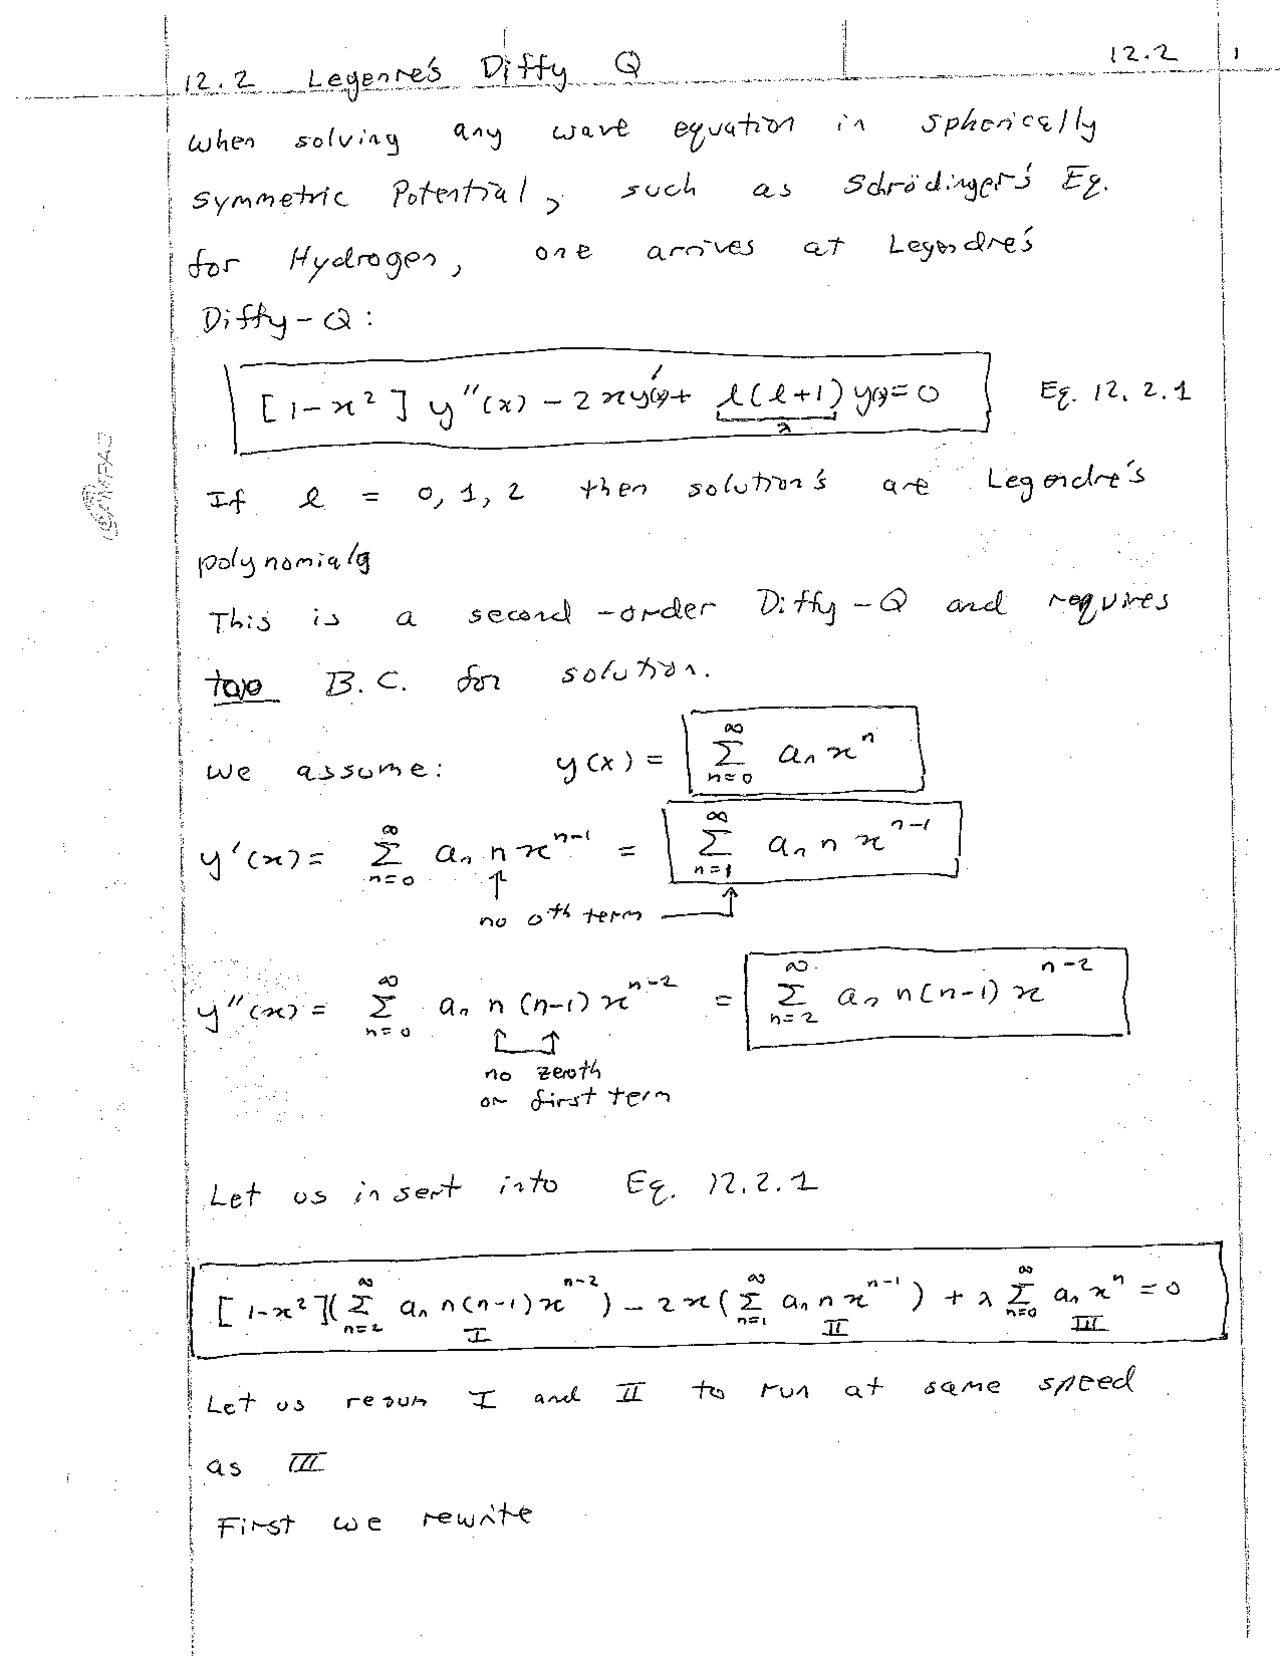 12.2 Legenre's Diffy Q 12.2 1
When solving any wave equation in spherically
symmetric Potential, such as Schrödinger's Eq.
for Hydrogen, one arrives at Legendre's
Diffy-Q:
[1-x²] y''(x) - 2xy'(x) + l(l+1) y(x) = 0 Eq. 12.2.1
λ
AMPAD
If l = 0, 1, 2 then solution's are Legendre's
polynomials
This is a second-order Diffy-Q and requires
two B.C. for solution.
We assume: y(x) = ∑_{n=0}^{∞} aₙ xⁿ
y'(x) = ∑_{n=0}^{∞} aₙ n x^{n-1} = ∑_{n=1}^{∞} aₙ n x^{n-1}
no 0th term
y''(x) = ∑_{n=0}^{∞} aₙ n(n-1) x^{n-2} = ∑_{n=2}^{∞} aₙ n(n-1) x^{n-2}
no zeroth
or first term
Let us insert into Eq. 12.2.1
[1-x²](∑_{n=2}^{∞} aₙ n(n-1) x^{n-2}) - 2x(∑_{n=1}^{∞} aₙ n x^{n-1}) + λ ∑_{n=0}^{∞} aₙ xⁿ = 0
I II III
Let us resum I and II to run at same speed
as III
First we rewrite